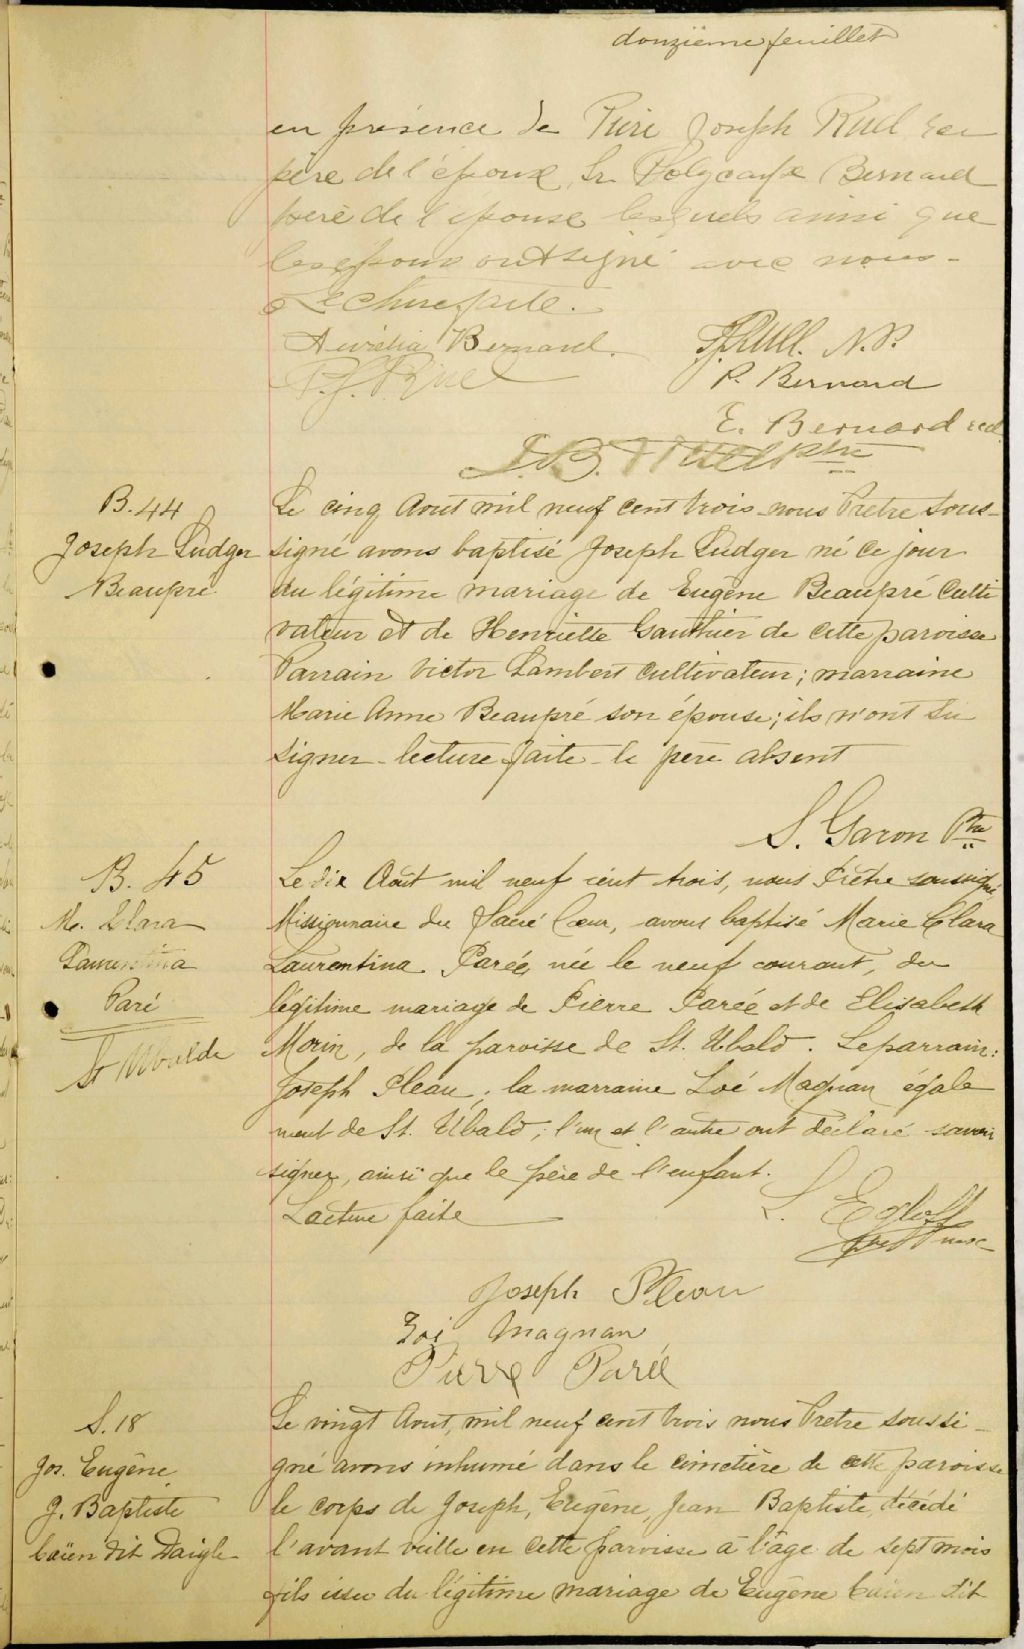 douzième feuillet
en présence de Pierre Joseph Ruel
père de l'époux, Sr Polycarpe Bernard
père de l'épouse lesquels ainsi que
les époux ont signé avec nous -
Lecture faite.
Aurélia Bernard. J. Ruel. N.P.
P. J. Ruel P. Bernard
E. Bernard
J. B. Ruel Ptre
B. 44
Joseph Ludger
Beaupré
Le cinq Aout mil neuf cent trois nous Pretre sous-
signé avons baptisé Joseph Ludger né ce jour
du légitime mariage de Eugène Beaupré Culti
vateur et de Henriette Gauthier de cette paroisse
Parrain Victor Lambert cultivateur; marraine
Marie Anne Beaupré son épouse; ils n'ont su
signer - lecture faite - le père absent
S. Garon Ptre
B. 45
M. Clara
Laurentina
Paré
St Ubalde
Le dix Août mil neuf cent trois, nous Prêtre soussigné,
Missionnaire du Sacré Cœur, avons baptisé Marie Clara
Laurentina Parée, née le neuf courant, du
légitime mariage de Pierre Parée et de Elisabeth
Morin, de la paroisse de St. Ubald. Le parrain:
Joseph Pleau; la marraine Zoé Magnan égale
ment de St. Ubald; l'un et l'autre ont déclaré savoir
signer, ainsi que le père de l'enfant.
Lecture faite L. Egloff
Joseph Pleau
Zoé Magnan
Pierre Parée
S. 18
Jos. Eugène
J. Baptiste
Caïen dit Daigle
Le vingt Aout, mil neuf cent trois nous Pretre soussi-
gné avons inhumé dans le cimetière de cette paroisse
le corps de Joseph, Eugène, Jean Baptiste, décédé
l'avant veille en cette paroisse à l'âge de sept mois
fils issu du légitime mariage de Eugène Caïen dit